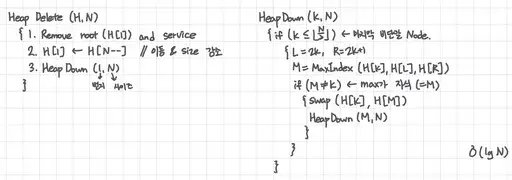 Heap Delete (H,N)
{ 1. Remove root (H[1]) and service
2. H[1] ← H[N--] // 이동 & size 감소
3. Heap Down (1, N)
}
Heap Down (K,N)
{ if (K ≤ ⌊N/2⌋) ← 마지막 비단말 Node.
{ L = 2K, R = 2K+1
M = MaxIndex (H[K], H[L], H[R])
if (M≠K) ← max가 자식 (=M)
{ swap (H[K], H[M])
Heap Down (M,N)
}
}
}
O(lg N)